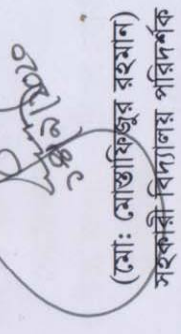 (মো: মোস্তাফিজুর রহমান)
সহকারী বিদ্যালয় পরিদর্শক